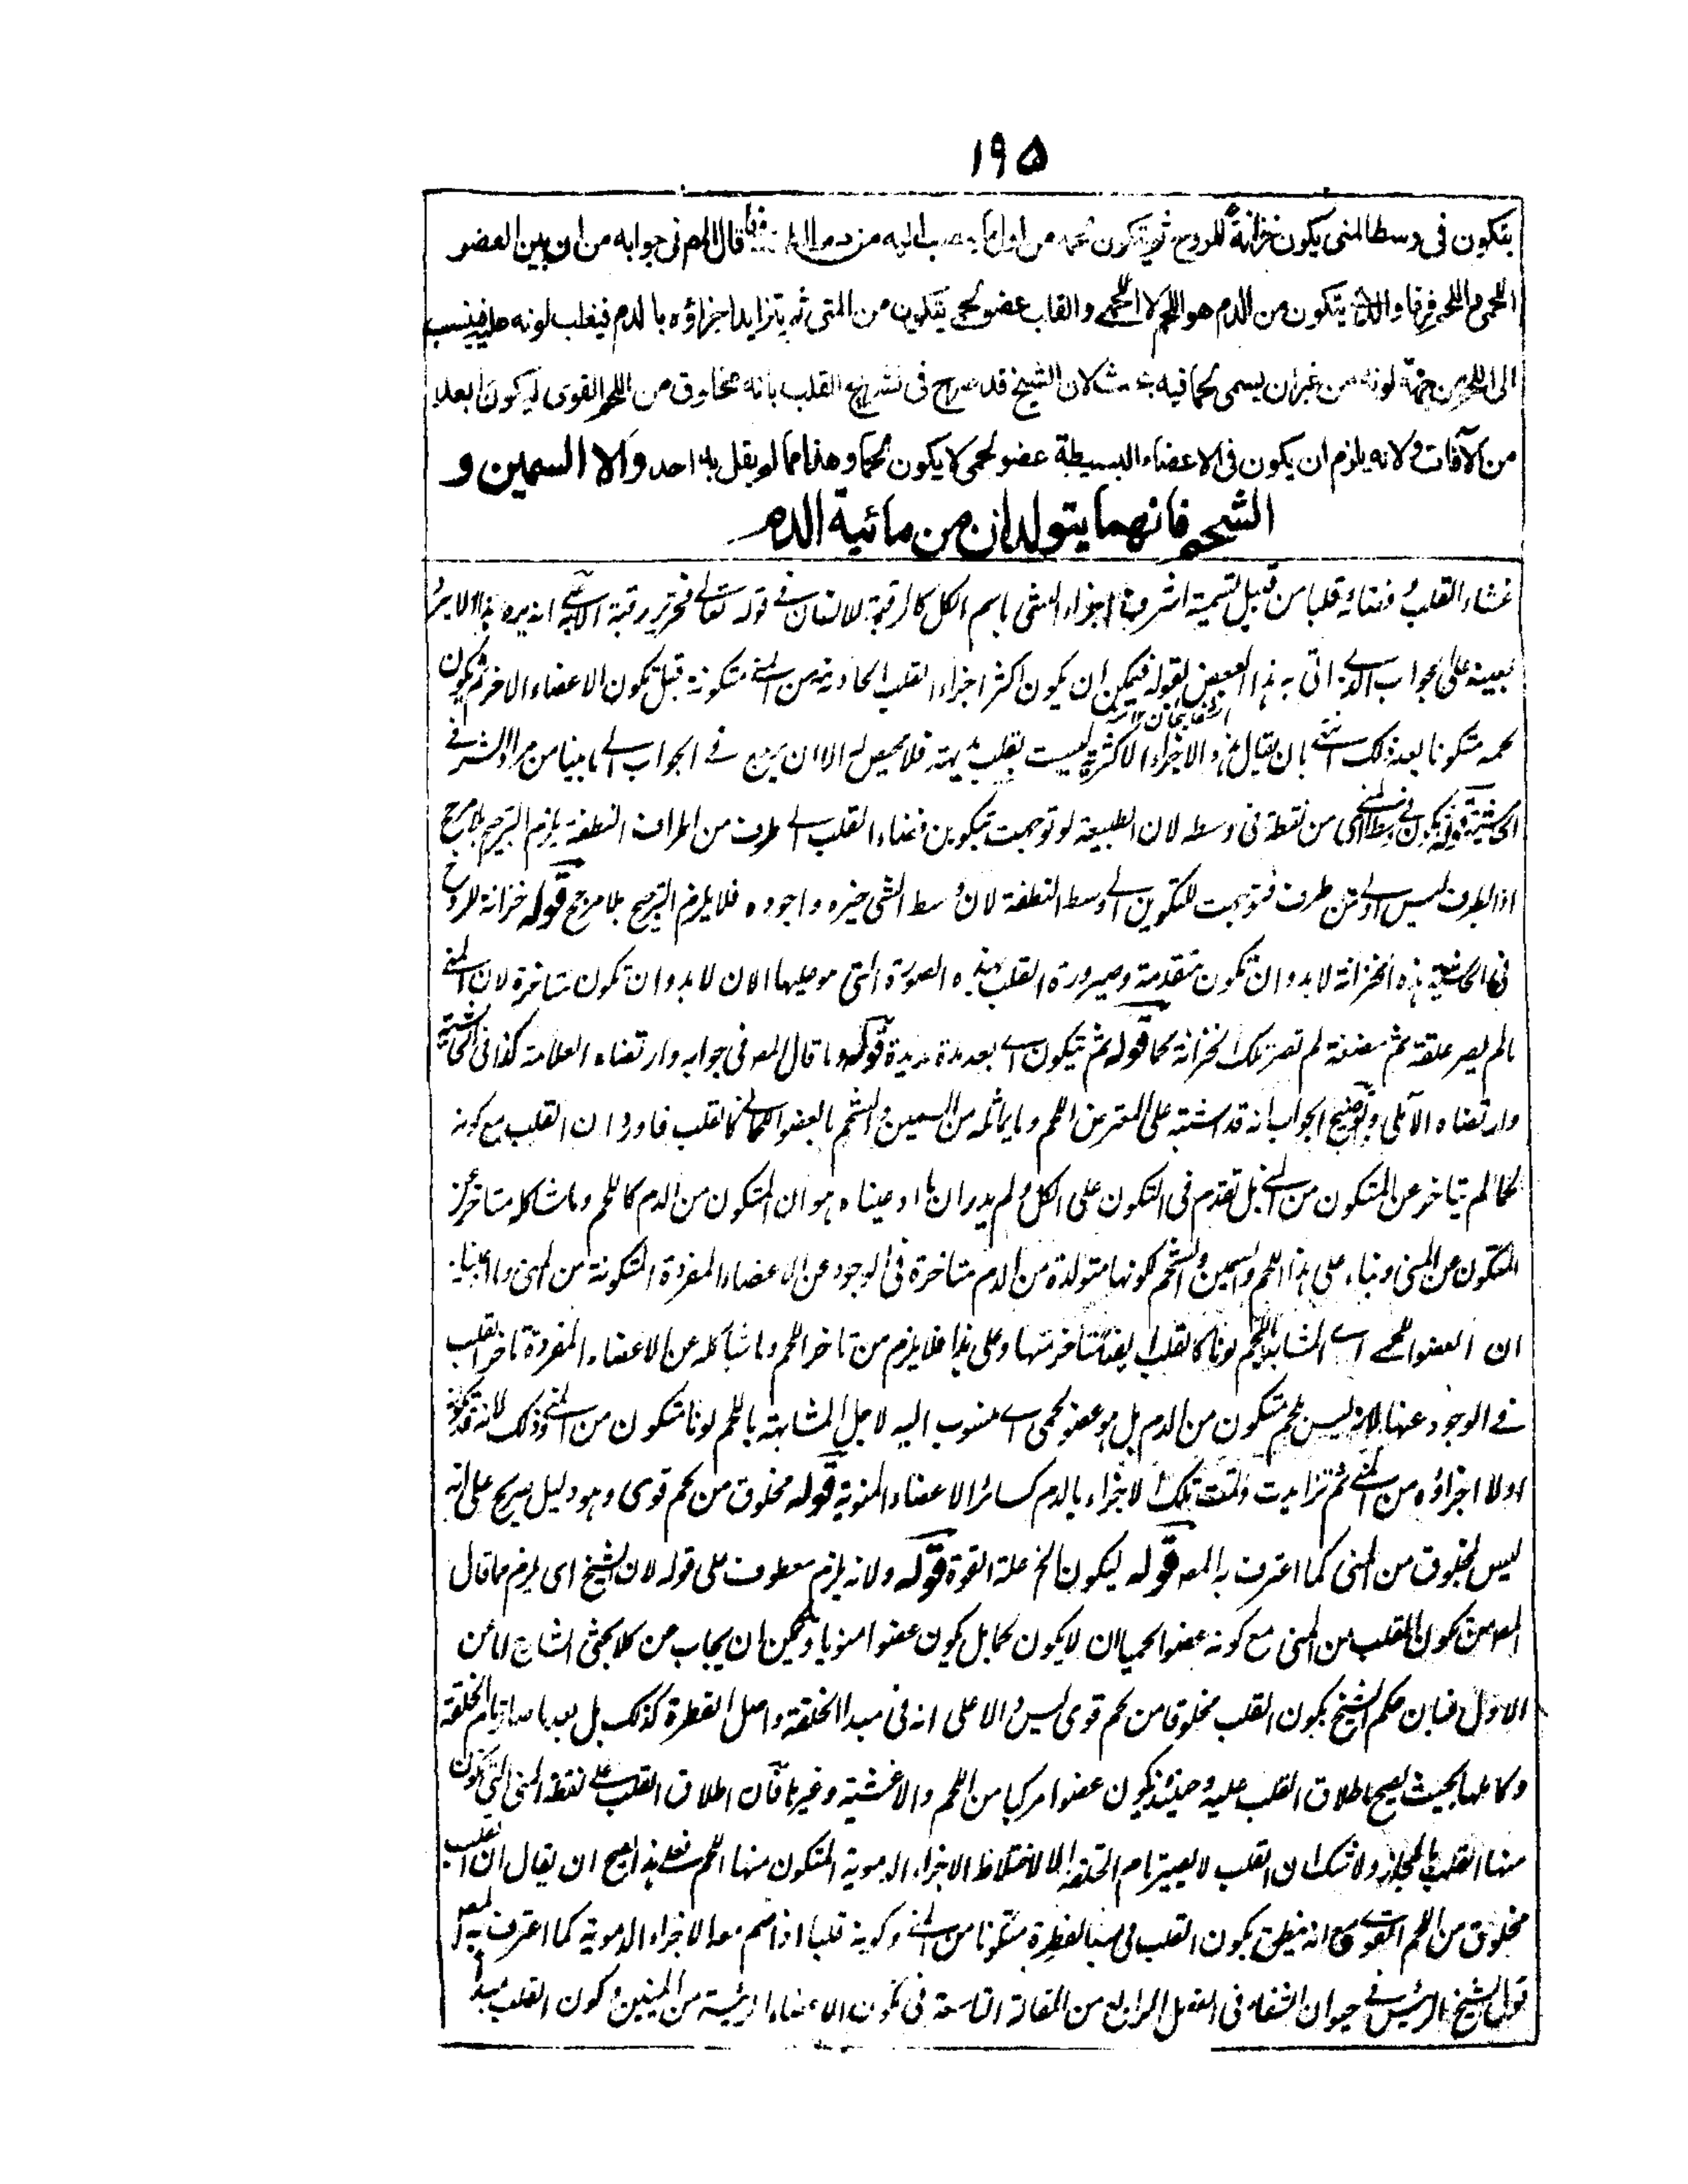 ١٩٥
يتكون فى وسط المنى يكون خزانة للروح ثم يتكون لحمه من ينصب اليه من دم قال المص فى جوابه من ان بين العضو
اللحمى واللحم فرقا والذى يتكون من الدم هو اللحم لا اللحمى والقلب عضو لحمى يتكون من المنى ثم يتزايد اجزاؤه بالدم فيغلب لونه عليه فينسب
الى اللحم من جهة لونه من غير ان يسمى لحما فيه بحث لان الشيخ قد صرح فى تشريح القلب بانه مخلوق من اللحم القوى ليكون ابعد
من الآفات ولانه يلزم ان يكون فى الاعضاء البسيطة عضو لحمى لا يكون لحما وهذا مما لم يقل به احد والا السمين و
الشحم فانهما يتولدان من مائية الدم
غشاء القلب وفضائه قلبا من قبيل تسمية اشرف اجزاء الشى باسم الكل كالرقبة للانسان فى قوله تعالى فتحرير رقبة الآية
بعينه على الجواب الذى اتى به هذا البعض بقوله فيمكن ان يكون اكثر اجزاء القلب الحادثة من المنى متكونة قبل تكون الاعضاء الاخر ثم يكون
لحمه متكونا بعد ذلك انتهى بان يقال هذه الاجزاء الاكثرية ليست بقلب بديهة فلا محيص له الا ان يرجع فى الجواب الى ما بينا من مراد الش فى
الحاشية قوله يتكون فى وسط المنى اى من نقطة فى وسطه لان الطبيعة لو توجهت بتكوين فضاء القلب الى طرف من اطراف النطفة يلزم الترجيح بلا مرجح
اذ الطرف ليس اولى من طرف فتوجهت للتكوين الى وسط النطفة لان وسط الشى خيره واجوده فلا يلزم الترجيح بلا مرجح قوله خزانة للروح
فى الحاشية هذه الخزانة لابد وان تكون متقدمة وصيرورة القلب بهذه الصورة التى هو عليها الان لابد وان تكون متاخرة لان المنى
ما لم يصر علقة ثم مضغة لم تصر تلك الخزانة لحما قوله ثم يتكون اى بعد مدة مديدة قوله وما قال المص فى جوابه وارتضاه العلامة كذا فى الحاشية
وارتضاه الآملى وتوضيح الجواب انه قد اشتبه على المعترض اللحم وما يماثله من السمين والشحم بالعضو اللحمانى كالقلب فاورد ان القلب مع كونه
لحما لم يتاخر عن المتكون من المنى بل تقدم فى التكون على الكل ولم يدر ان ما ادعيناه هو ان المتكون من الدم كاللحم وما شاكله متاخر عن
المتكون عن المنى وبناء على هذا اللحم والسمين والشحم لكونها متولدة من الدم متاخرة فى الوجود عن الاعضاء المفردة المتكونة من المنى وما ادعينا
ان العضو اللحمى اى المشابه للحم لونا كالقلب ايضا متاخر منها وعلى هذا فلا يلزم من تاخر اللحم وما شاكله عن الاعضاء المفردة تاخر القلب
فى الوجود عنها لانه ليس بلحم متكون من الدم بل هو عضو لحمى اى منسوب اليه لاجل المشابهة باللحم لونا متكون من المنى وذلك لانه قد تكون
اولا اجزاؤه من المنى ثم تزايدت ونمت تلك الاجزاء بالدم كسائر الاعضاء المنوية قوله مخلوق من لحم قوى وهو دليل صريح على انه
ليس بمخلوق من المنى كما اعترف به المص قوله ليكون الخ علة القوة قوله ولانه يلزم معطوف على قوله لان الشيخ اى يلزم مما قال
المص من تكون القلب من المنى مع كونه عضوا لحميا ان لا يكون لحما بل يكون عضوا منويا ويمكن ان يجاب من كلا بحثى الشارح اما عن
الاول فبان حكم الشيخ بكون القلب مخلوقا من لحم قوى ليس دالا على انه فى مبدا الخلقة واصل الفطرة كذلك بل بعد ما صار تام الخلقة
وكاملها بحيث يصح اطلاق القلب عليه وحينئذ يكون عضوا مركبا من اللحم والاغشية وغيرها فان اطلاق القلب على نقطة المنى التى تكون
منها القلب بالمجاز ولا شك ان القلب لا يصير تام الخلقة الا لاختلاط الاجزاء الدموية المتكون منها اللحم فعلى هذا يصح ان يقال ان القلب
مخلوق من اللحم القوى مع انه ينطق بكون القلب فى مبدا الفطرة متكونا من المنى وكونه قلبا اذا ضم معه الاجزاء الدموية كما اعترف به المص
قول الشيخ الرئيس فى حيوان الشفاء فى الفصل الرابع من المقالة التاسعة فى تكون الاعضاء الرئيسة من المنيين وكون القلب مبدأ